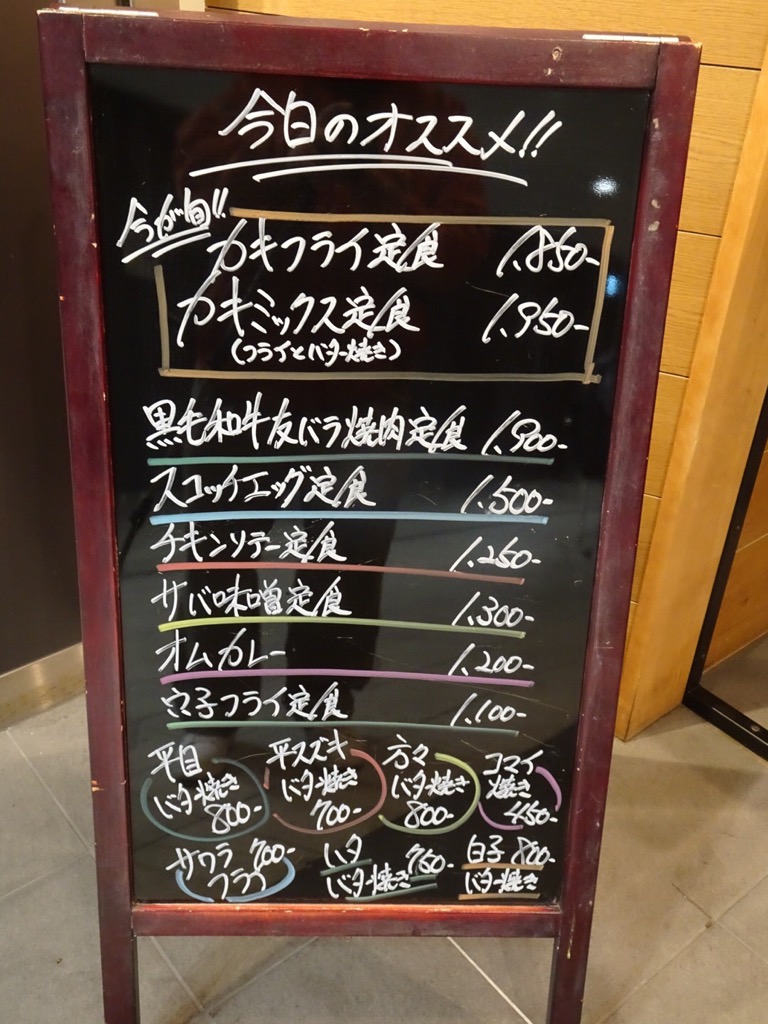 今日のオススメ!!
今が旬!!
カキフライ定食 1,850-
カキミックス定食 1,950-
(フライとバター焼き)
黒毛和牛友バラ焼肉定食 1,900-
スコッチエッグ定食 1,500-
チキンソテー定食 1,250-
サバ味噌定食 1,300-
オムカレー 1,200-
穴子フライ定食 1,100-
平目
バター焼き
800-
平スズキ
バター焼き
700-
方々
バター焼き
800-
コマイ
焼き
450-
サワラ 700-
フライ
ハタ 750-
バター焼き
白子 800-
バター焼き